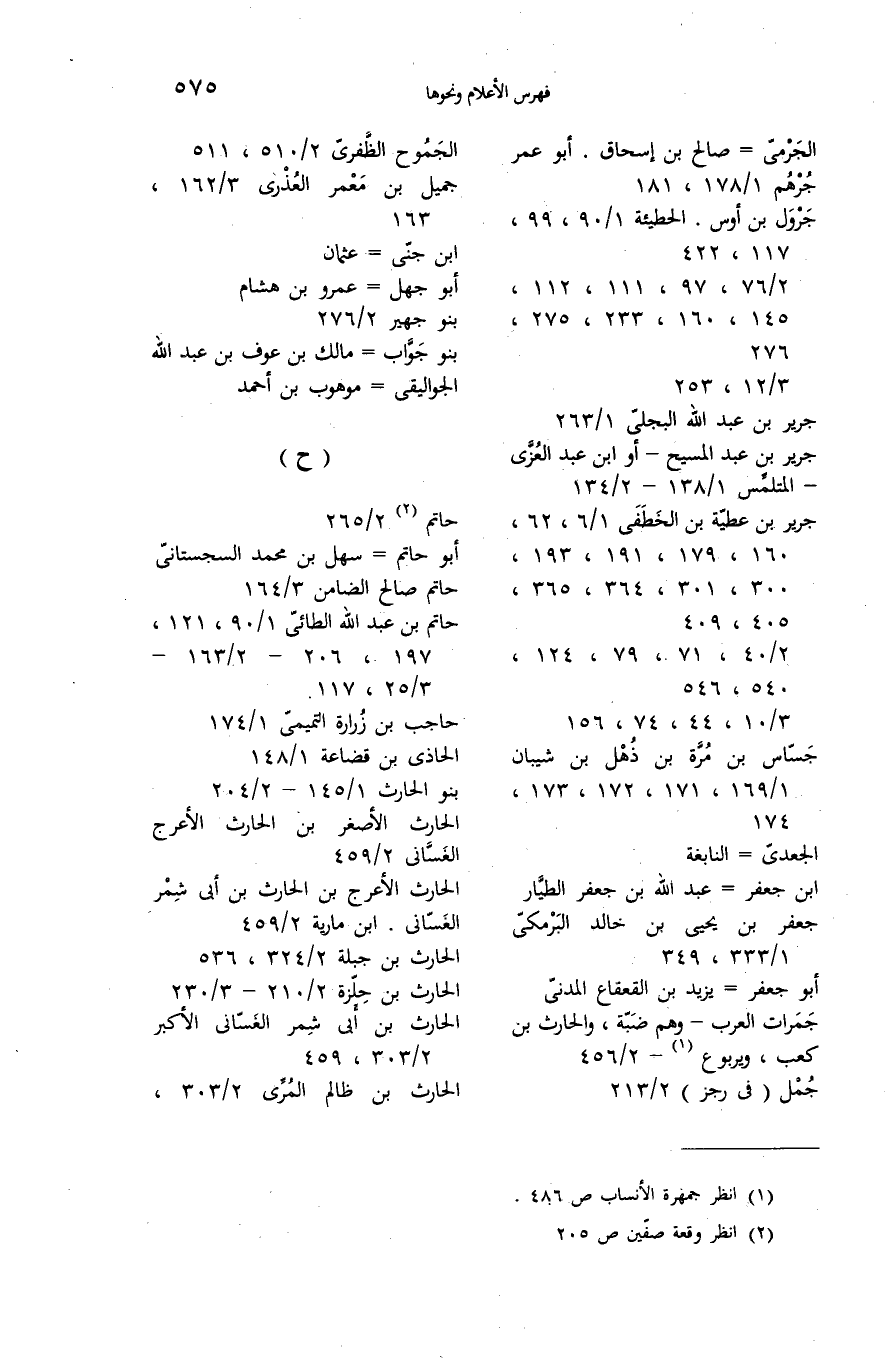 فهرس الأعلام ونحوها
٥٧٥
الجَرْمىّ = صالح بن إسحاق . أبو عمر
جُرْهُم ١٧٨/١ ، ١٨١
جَرْوَل بن أوس . الحطيئة ٩٠/١ ، ٩٩ ،
١١٧ ، ٤٢٢
٧٦/٢ ، ٩٧ ، ١١١ ، ١١٢ ،
١٤٥ ، ١٦٠ ، ٢٣٣ ، ٢٧٥ ،
٢٧٦
١٢/٣ ، ٢٥٣
جرير بن عبد الله البجلىّ ٢٦٣/١
جرير بن عبد المسيح – أو ابن عبد العُزَّى
– المتلمِّس ١٣٨/١ – ١٣٤/٢
جرير بن عطيّة بن الخَطَفَى ٦/١ ، ٦٢ ،
١٦٠ ، ١٧٩ ، ١٩١ ، ١٩٣ ،
٣٠٠ ، ٣٠١ ، ٣٦٤ ، ٣٦٥ ،
٤٠٥ ، ٤٠٩
٤٠/٢ ، ٧١ ، ٧٩ ، ١٢٤ ،
٥٤٠ ، ٥٤٦
١٠/٣ ، ٤٤ ، ٧٤ ، ١٥٦
جَسّاس بن مُرَّة بن ذُهْل بن شيبان
١٦٩/١ ، ١٧١ ، ١٧٢ ، ١٧٣ ،
١٧٤
الجعدىّ = النابغة
ابن جعفر = عبد الله بن جعفر الطيَّار
جعفر بن يحيى بن خالد البَرْمكىّ
٣٣٣/١ ، ٣٤٩
أبو جعفر = يزيد بن القعقاع المدنىّ
جَمَرات العرب – وهم ضَبّة ، والحارث بن
كعب ، ويربوع (١) – ٤٥٦/٢
جُمْل ( فى رجز ) ٢١٣/٢
الجَمُوح الظَّفرىّ ٥١٠/٢ ، ٥١١
جميل بن مَعْمر العُذْرى ١٦٢/٣ ،
١٦٣
ابن جنّى = عثمان
أبو جهل = عمرو بن هشام
بنو جهير ٢٧٦/٢
بنو جَوَّاب = مالك بن عوف بن عبد الله
الجواليقى = موهوب بن أحمد
( ح )
حاتم (٢) ٢٦٥/٢
أبو حاتم = سهل بن محمد السجستانىّ
حاتم صالح الضامن ١٦٤/٣
حاتم بن عبد الله الطائىّ ٩٠/١ ، ١٢١ ،
١٩٧ ، ٢٠٦ – ١٦٣/٢ –
٢٥/٣ ، ١١٧
حاجب بن زُرارة التميمىّ ١٧٤/١
الحاذى بن قضاعة ١٤٨/١
بنو الحارث ١٤٥/١ – ٢٠٤/٢
الحارث الأصغر بن الحارث الأعرج
الغَسَّانى ٤٥٩/٢
الحارث الأعرج بن الحارث بن أبى شِمْر
الغَسّانى . ابن مارية ٤٥٩/٢
الحارث بن جبلة ٣٢٤/٢ ، ٥٣٦
الحارث بن حِلِّزة ٢١٠/٢ – ٢٣٠/٣
الحارث بن أبى شِمر الغَسّانى الأكبر
٣٠٣/٢ ، ٤٥٩
الحارث بن ظالم المُرِّى ٣٠٣/٢ ،
(١) انظر جمهرة الأنساب ص ٤٨٦ .
(٢) انظر وقعة صفّين ص ٢٠٥